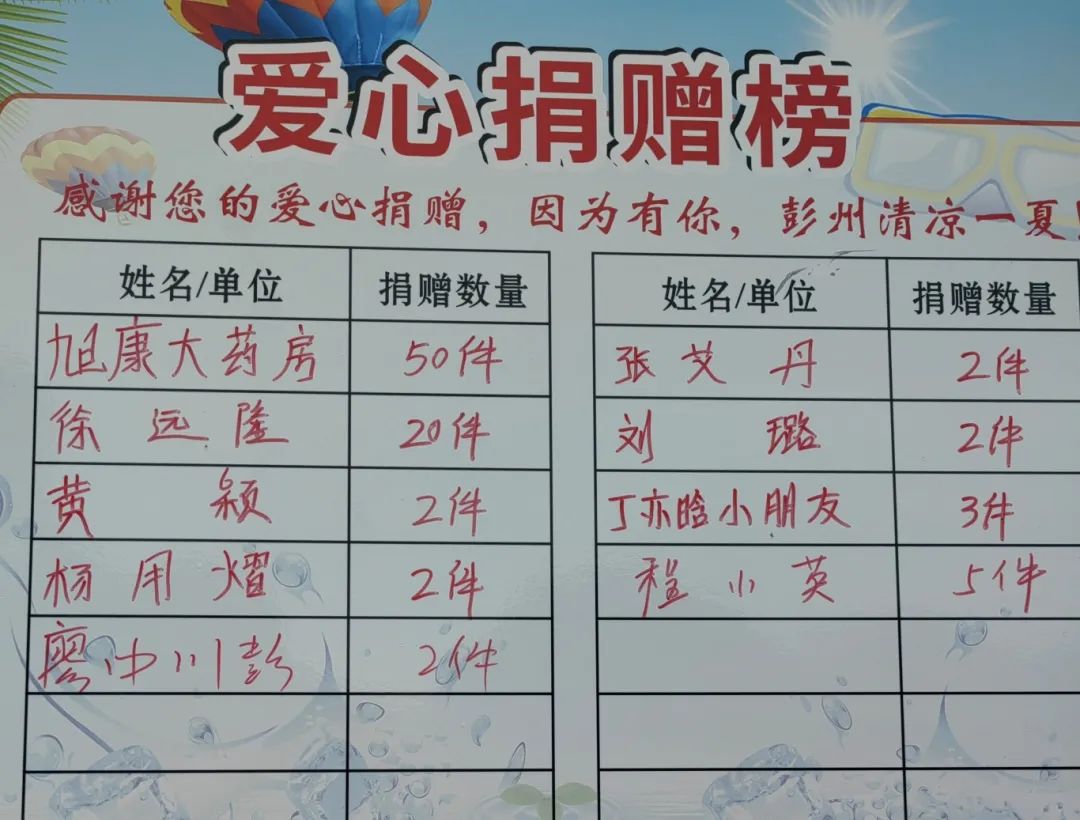 爱心捐赠榜
感谢您的爱心捐赠，因为有你，彭州清凉一夏！
姓名/单位 捐赠数量 姓名/单位 捐赠数量
旭康大药房 50件 张艾丹 2件
徐远隆 20件 刘璐 2件
黄颖 2件 丁亦晗小朋友 3件
杨用熠 2件 程小英 5件
廖小川彭 2件